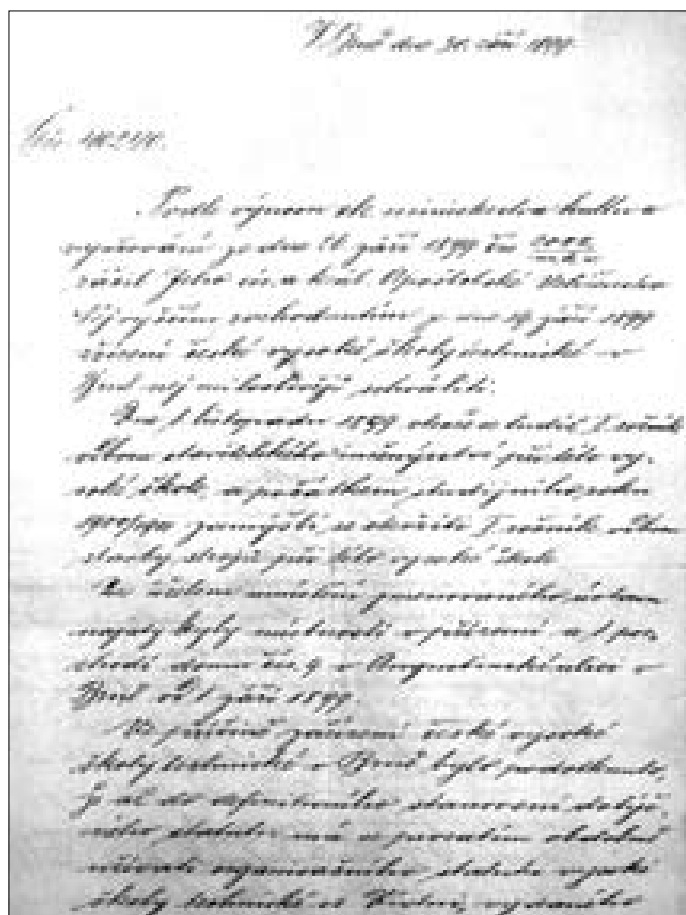 V Brně dne 30. září 1899.
Čís. 40240.
Podle výnosu ministerstva kultu a
vyučování ze dne září 1899 čís.
ráčil Jeho cís. a král. Apoštolské Veličenstvo
Nejvyšším rozhodnutím z dne 19. září 1899
zřízení české vysoké školy technické v
Brně nejmilostivěji schváliti.
Dne 1 listopadu 1899 otevře se I. ročník
odboru stavitelského inženýrství při této vy-
soké škole, a počátkem studijního roku
1900/1901 zamýšlí se otevříti I ročník odboru
stavby strojů při této vysoké škole
Za účelem umístění jmenovaného ústavu
najaty byly místnosti v přízemí a I po-
schodí domu čís. 9 v Augustinské ulici v
Brně od 1 září 1899.
Ve příčině zařízení české vysoké
školy technické v Brně bylo podotknuto,
že až do definitivního stanovení
statutu má se
organisačního statutu vysoké
školy technické ve Vídni, vydaného